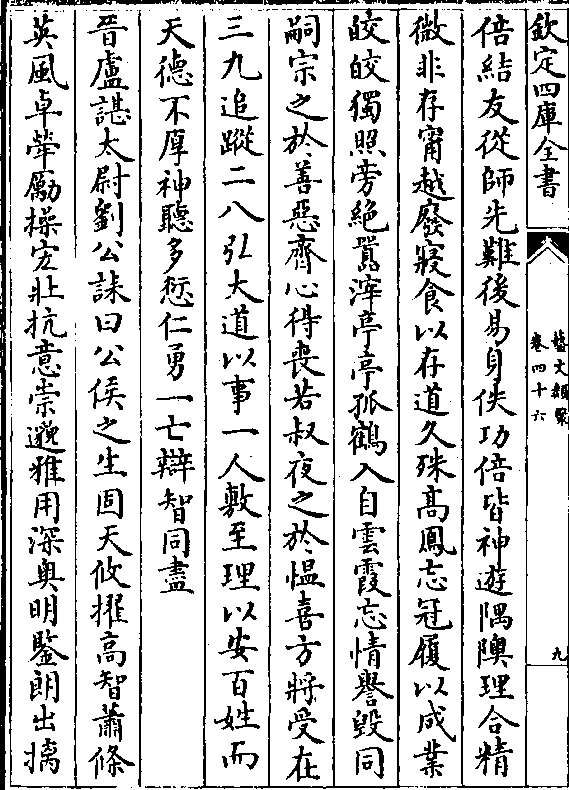 欽定四庫全書
藝文類聚
卷四十六
九
倍結友從師先難後易身佚功倍皆神遊隅隩理合精
微非存甯越廢寢食以存道久殊高鳳忘冠履以成業
皎皎獨照旁絶囂滓亭亭孤鶴入自雲霞忘情譽毀同
嗣宗之於善惡齊心得喪若叔夜之於愠喜方將受在
三九追蹤二八弘大道以事一人敷至理以安百姓而
天德不厚神聽多愆仁勇一亡辯智同盡
晉盧諶太尉劉公誄曰公侯之生固天攸擢高智蕭條
英風卓犖勵操宏壯抗意崇邈雅用深奥明鍳朗出摛